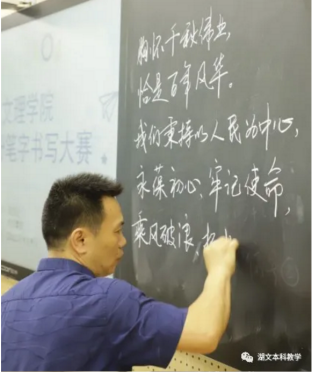 文理学院
笔字书写大赛
胸怀千秋伟业,
恰是百年风华。
我们秉持以人民为中心,
永葆初心、牢记使命,
乘风破浪、扬
湖文本科教学